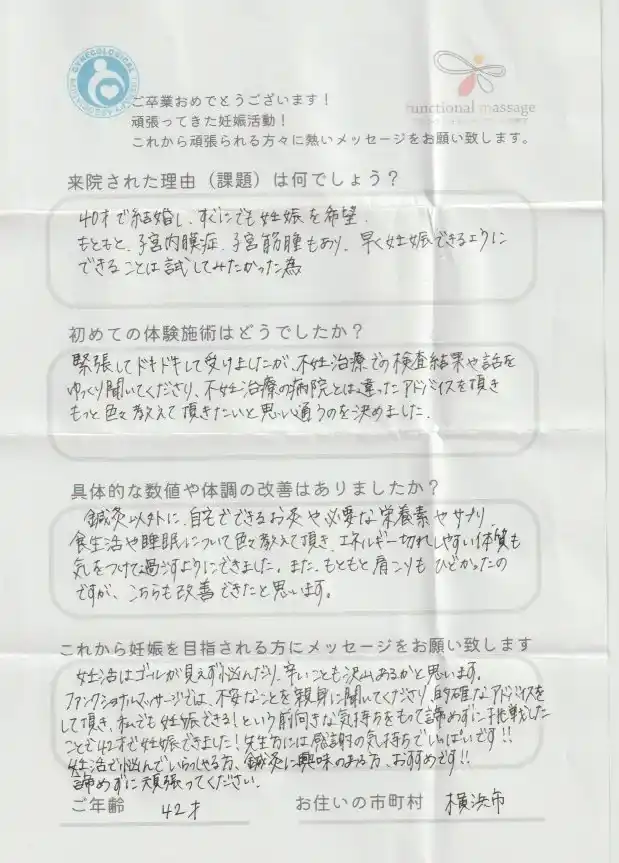 GYNECOLOGICAL
functional massage
ご卒業おめでとうございます！
頑張ってきた妊娠活動！
これから頑張られる方々に熱いメッセージをお願い致します。
来院された理由（課題）は何でしょう？
40才で結婚し、すぐにでも妊娠を希望、
もともと、子宮内膜症、子宮筋腫もあり、早く妊娠できるように
できることは試してみたかった為
初めての体験施術はどうでしたか？
緊張してドキドキして受けましたが、不妊治療での検査結果や話を
ゆっくり聞いてくださり、不妊治療の病院とは違ったアドバイスを頂き
もっと色々教えて頂きたいと思い通うのを決めました。
具体的な数値や体調の改善はありましたか？
鍼灸以外に、自宅でできるお灸や必要な栄養素やサプリ、
食生活や睡眠について色々教えて頂き、エネルギー切れしやすい体質も
気をつけて過ごすようにできました。また、もともと肩こりもひどかったの
ですが、こちらも改善できたと思います。
これから妊娠を目指される方にメッセージをお願い致します
妊活はゴールが見えず悩んだり、辛いことも沢山あるかと思います。
ファンクショナルマッサージでは、不安なことを親身に聞いてくださり、的確なアドバイスを
して頂き、私でも妊娠できる！という前向きな気持ちをもって諦めずに挑戦した
ことで42才で妊娠できました！先生方には感謝の気持ちでいっぱいです！！
妊活で悩んでいらっしゃる方、鍼灸に興味のある方、おすすめです！！
諦めずに頑張ってください。
ご年齢 42才 お住いの市町村 横浜市